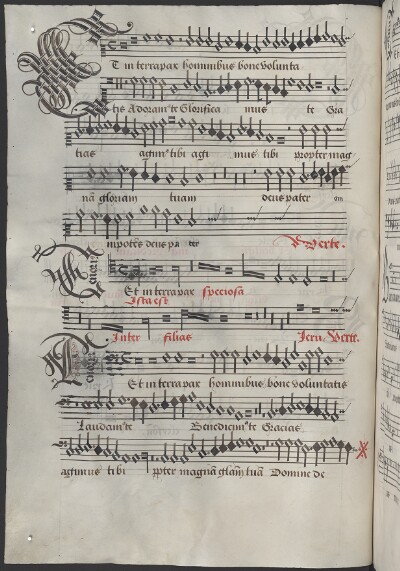 T in terra pax hominibus bone volunta
tis Adoram⁹ te Glorifica mus te Gra
tias agim⁹ tibi agi mus tibi propter mag
nā gloriam tuam deus pater om
nipotēs deus pa ter Verte.
Et in terra pax speciosā
Ista est
Inter filias Ieru Verte.
Et in terra pax hominibus bone voluntatis
Laudam⁹ te Benedicim⁹ te Gracias
agimus tibi ꝓpter magnā glām tuā Domine de